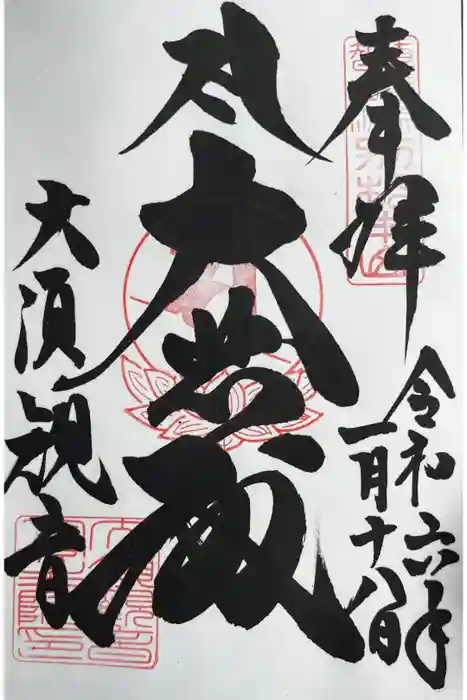 奉拝
令和六年
一月十八日
大悲殿
大須観音